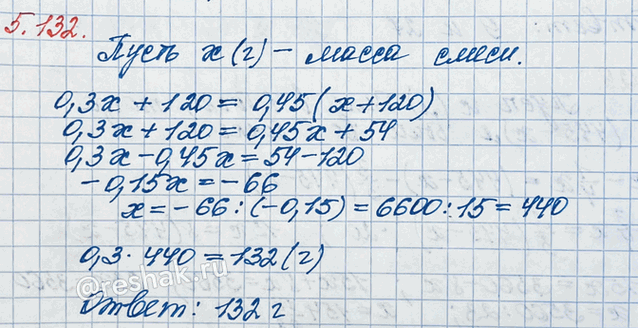 5.132.
Пусть x (г) – масса смеси.
0,3x + 120 = 0,45(x+120)
0,3x + 120 = 0,45x + 54
0,3x - 0,45x = 54 - 120
- 0,15x = - 66
x = - 66 : (- 0,15) = 6600 : 15 = 440
0,3 · 440 = 132 (г)
©reshak.ru
Ответ: 132 г